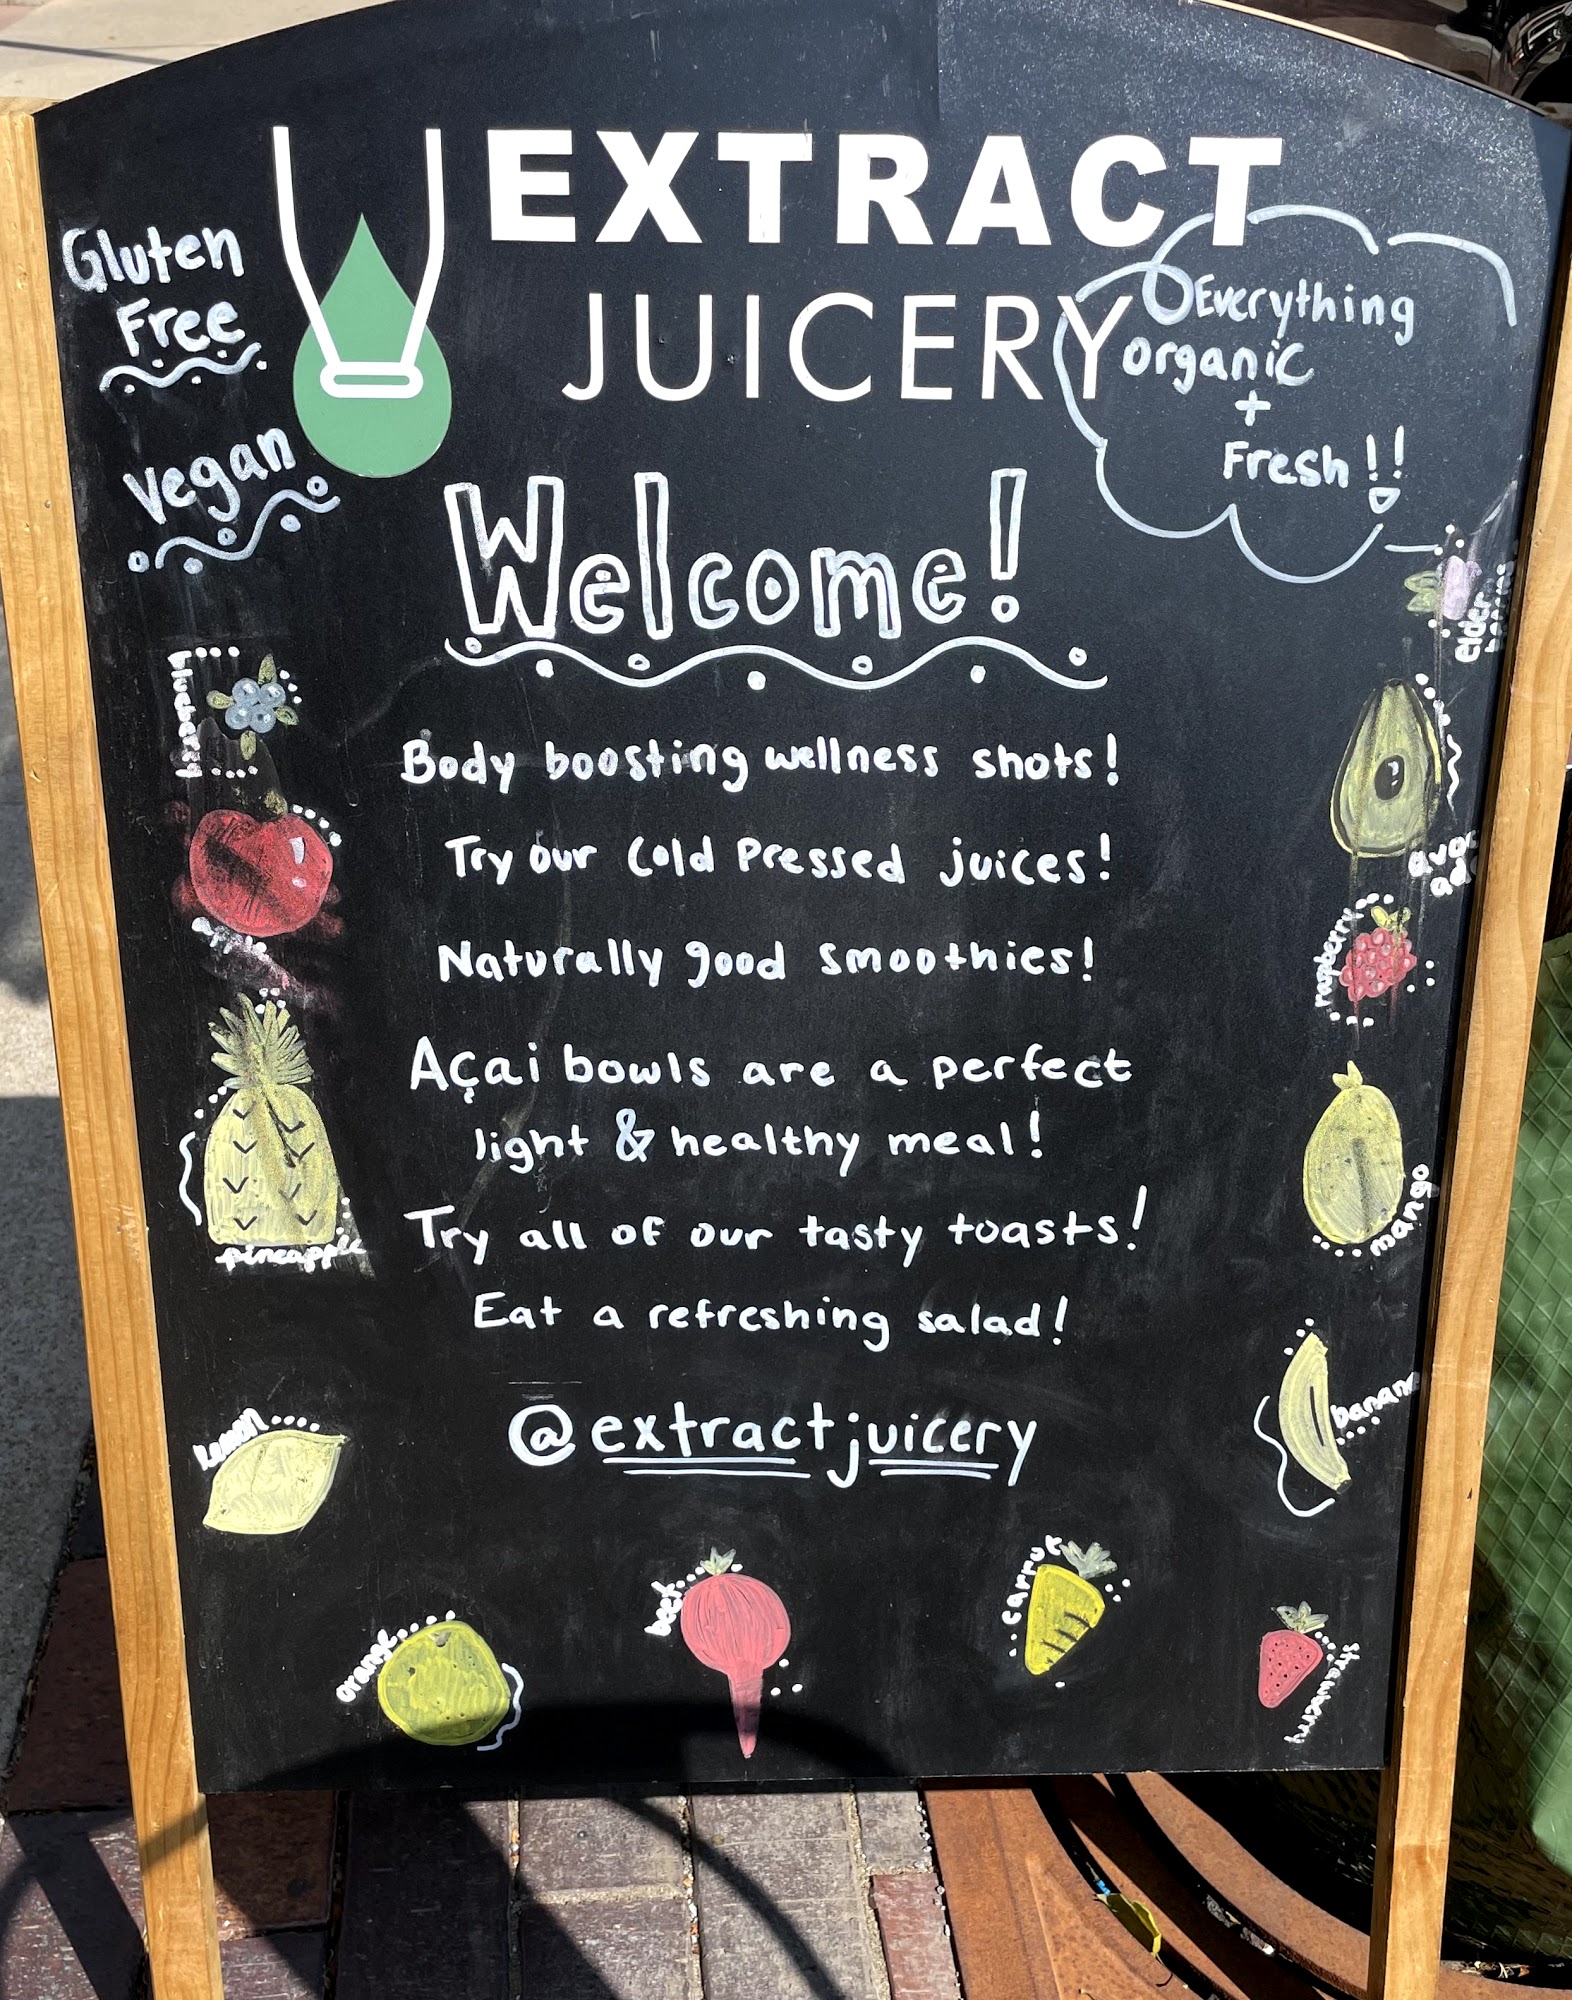 EXTRACT
JUICERY
Gluten
Free
Vegan
Everything
organic
+
Fresh!!
Welcome!
Body boosting wellness shots!
Try our cold pressed juices!
Naturally good smoothies!
Açai bowls are a perfect
light & healthy meal!
Try all of our tasty toasts!
Eat a refreshing salad!
@extractjuicery
blueberry
apple
pineapple
lemon
orange
beet
carrot
strawberry
banana
mango
raspberry
avoc
ad
elder